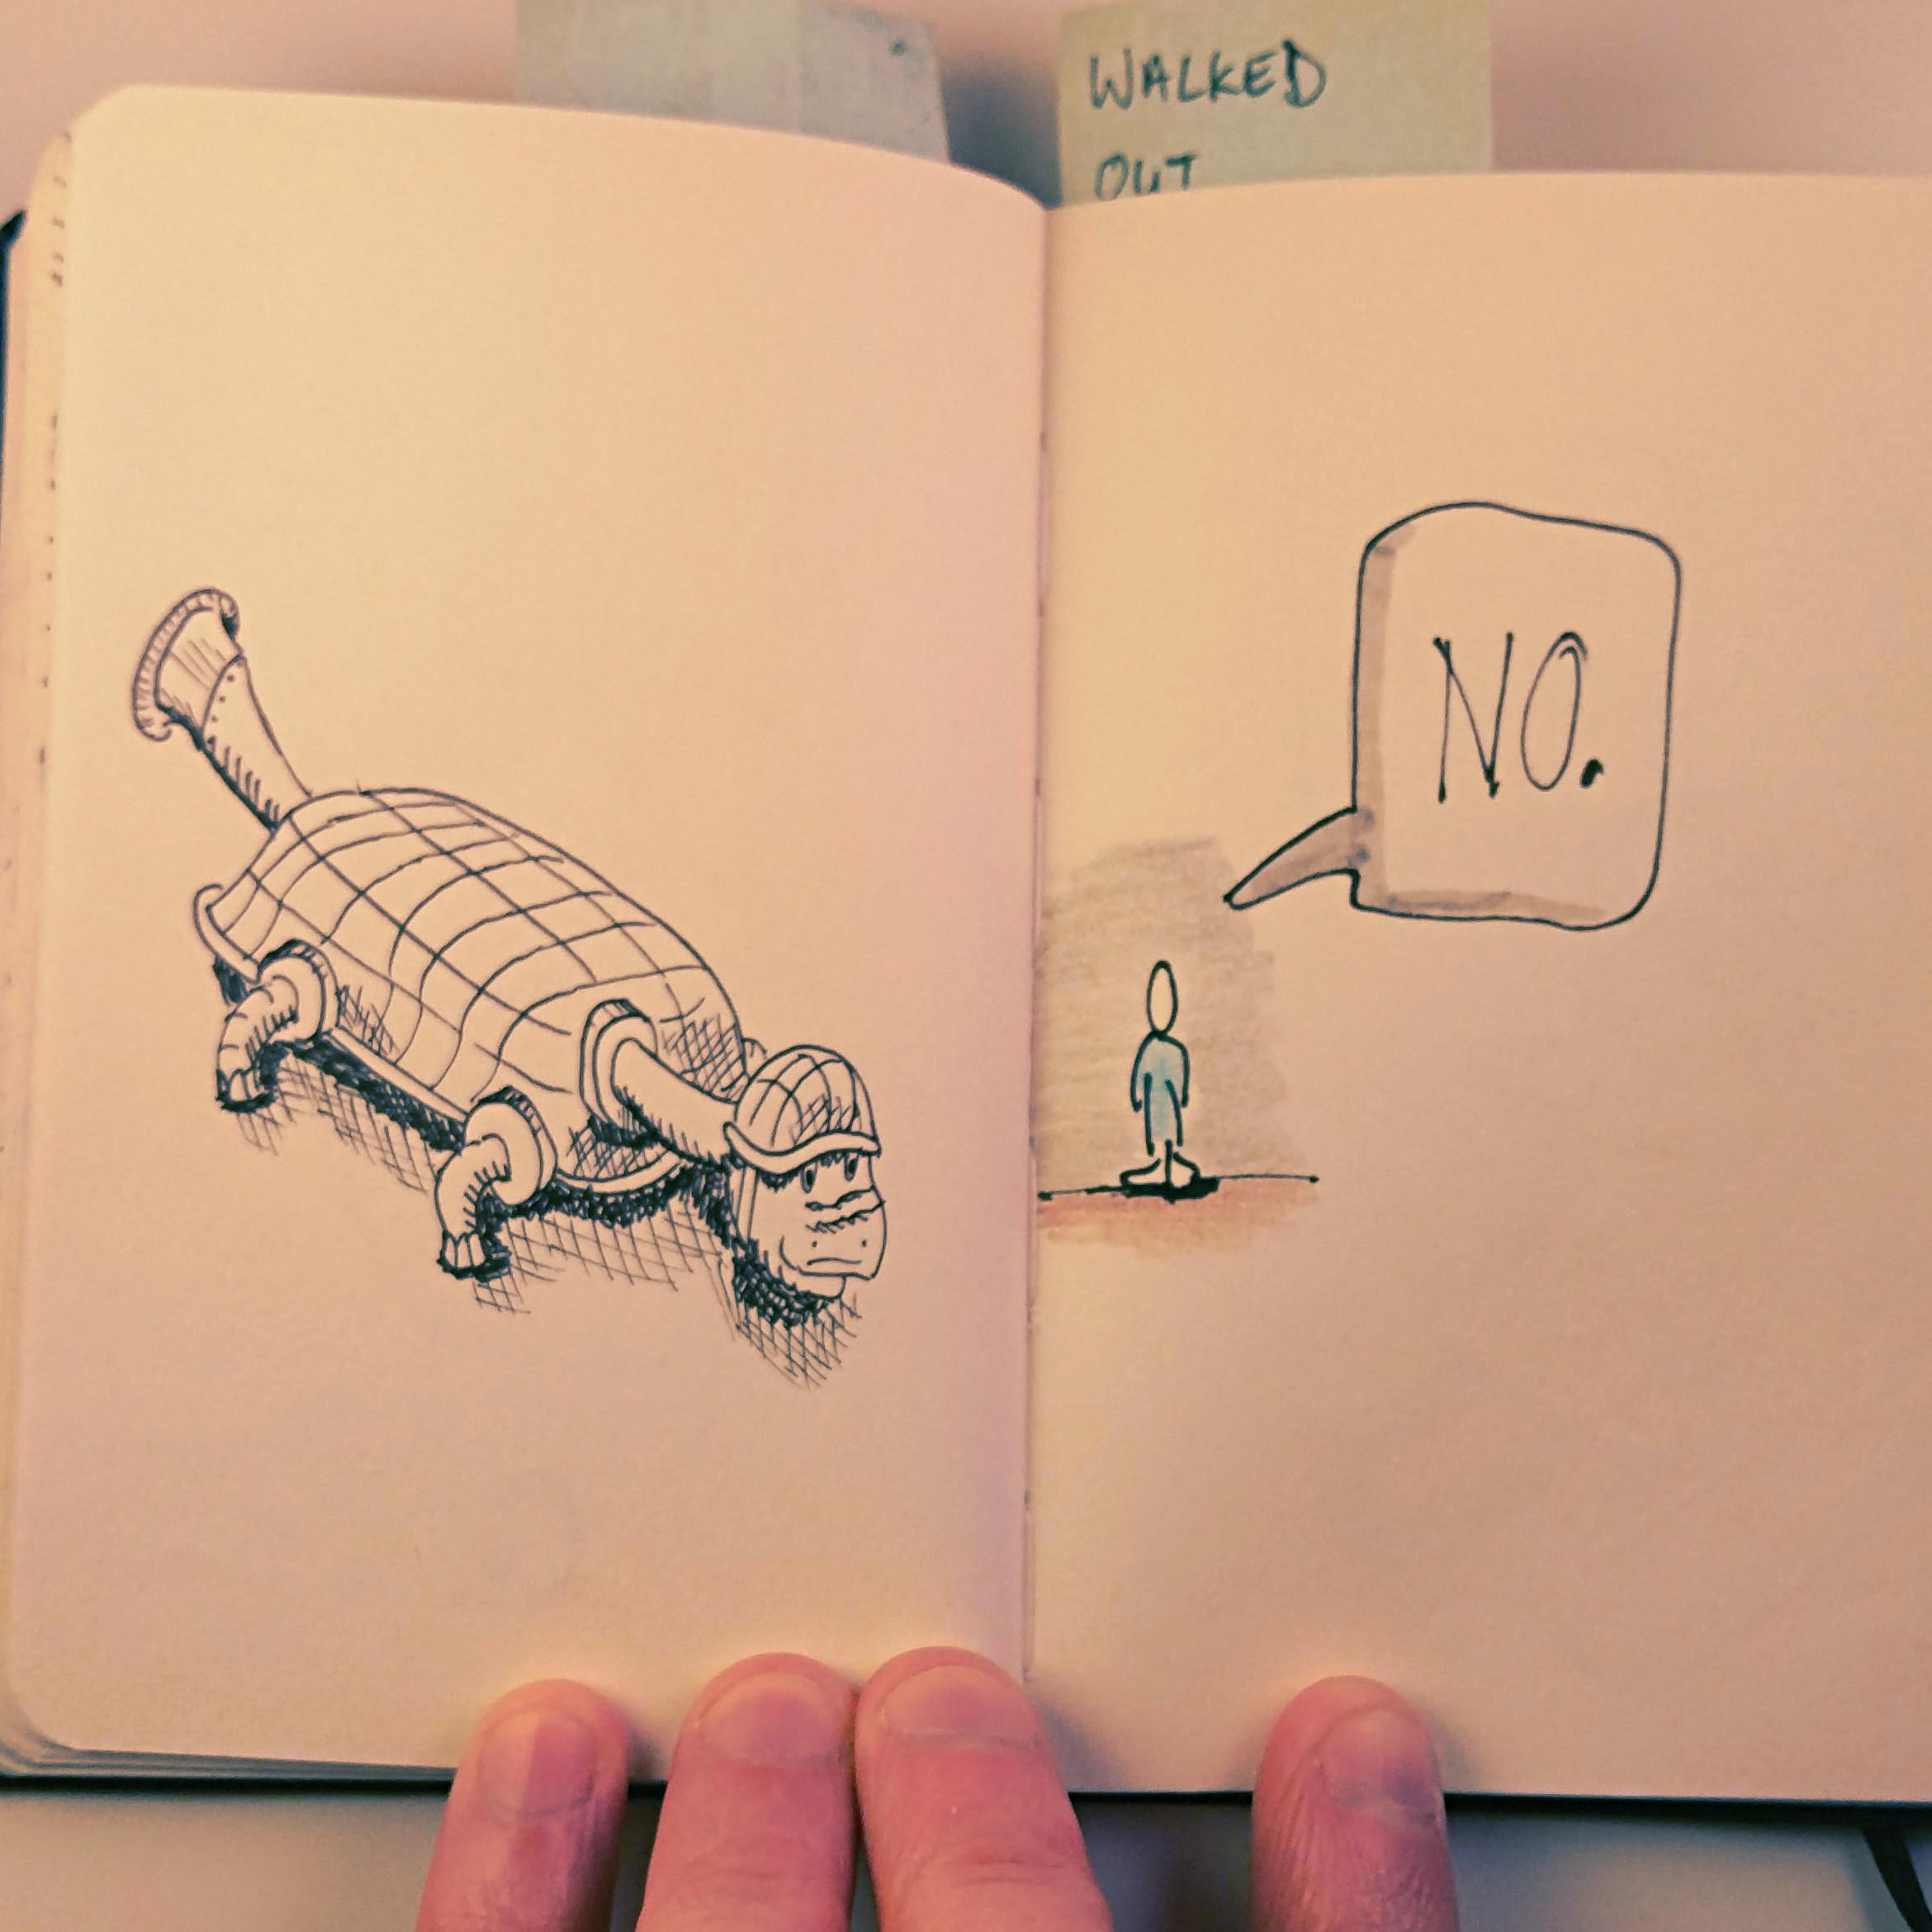 WALKED
OUT
NO.